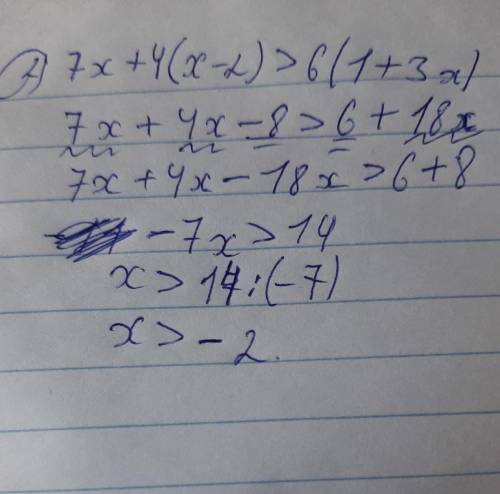 2) 7x+4(x-2)>6(1+3x)
7x+4x-8>6+18x
7x+4x-18x>6+8
-7x>14
x>14:(-7)
x>-2.